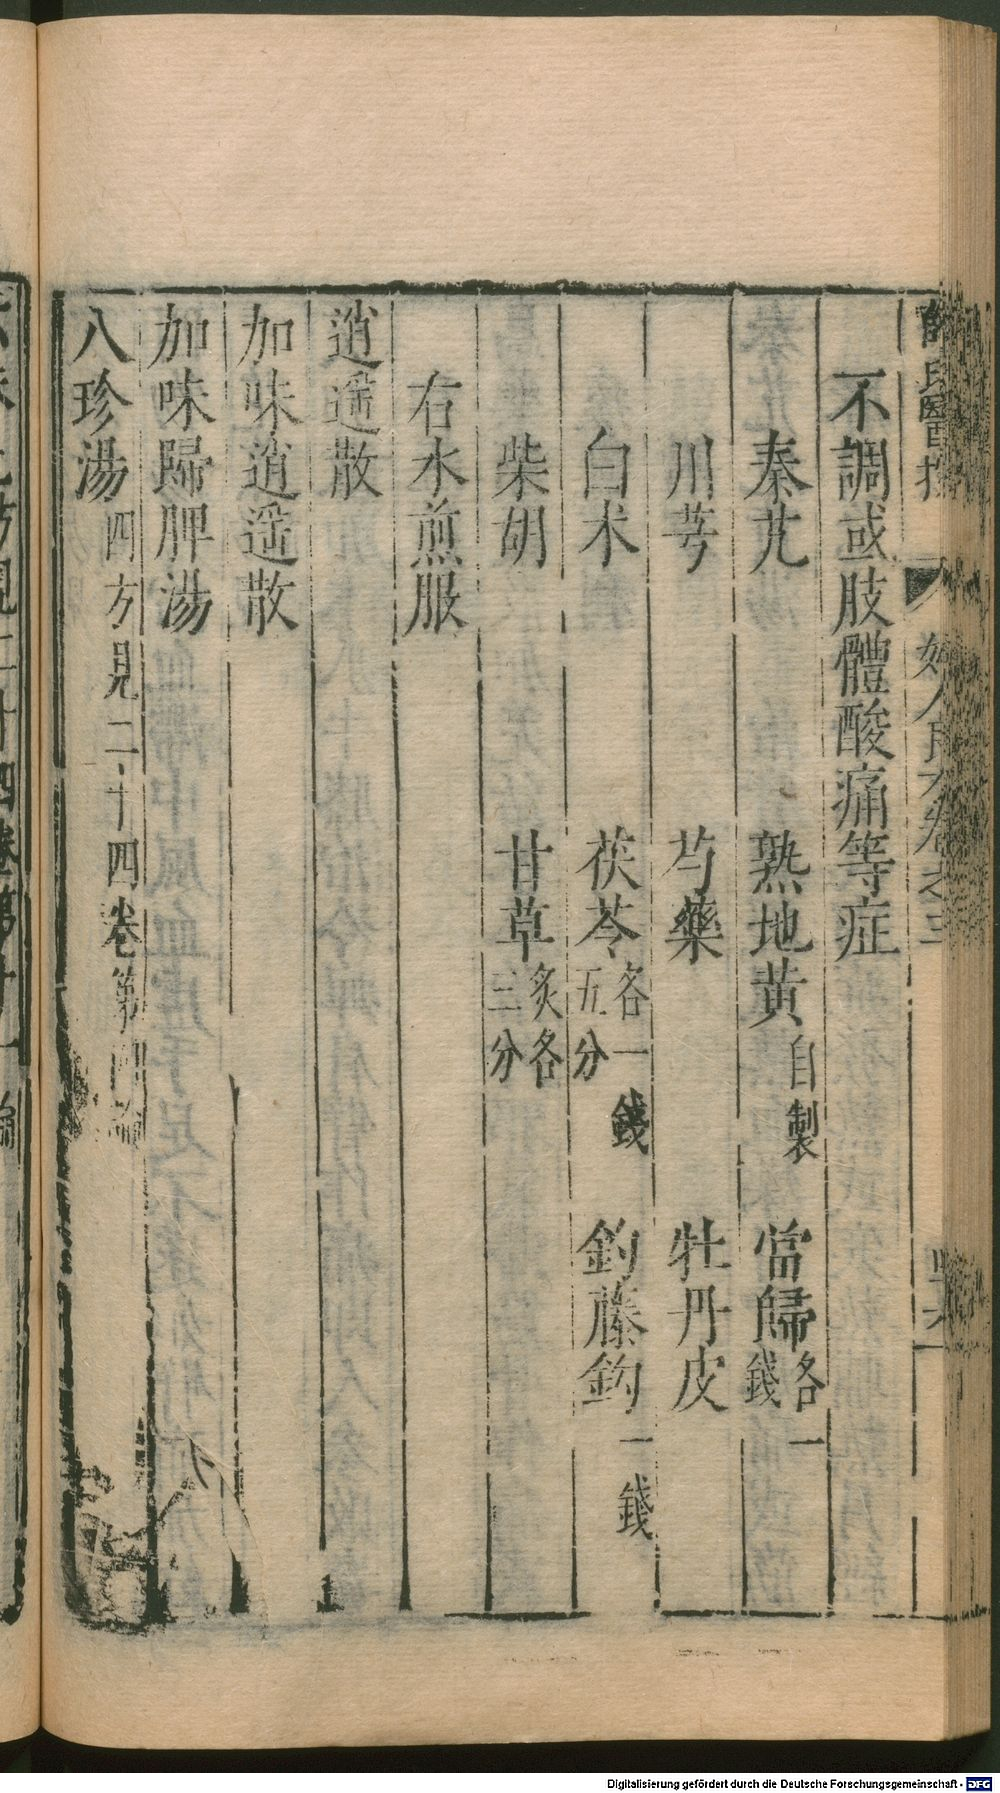 薛氏醫按 婦人良方卷之三
不調或肢體酸痛等症
秦艽 熟地黃自製 當歸各一錢
川芎 芍藥 牡丹皮
白朮 茯苓各一錢五分 釣藤鈎一錢
柴胡 甘草炙各三分
右水煎服
逍遥散
加味逍遥散
加味歸脾湯
八珍湯四方見二十四卷第四論
Digitalisierung gefördert durch die Deutsche Forschungsgemeinschaft - DFG